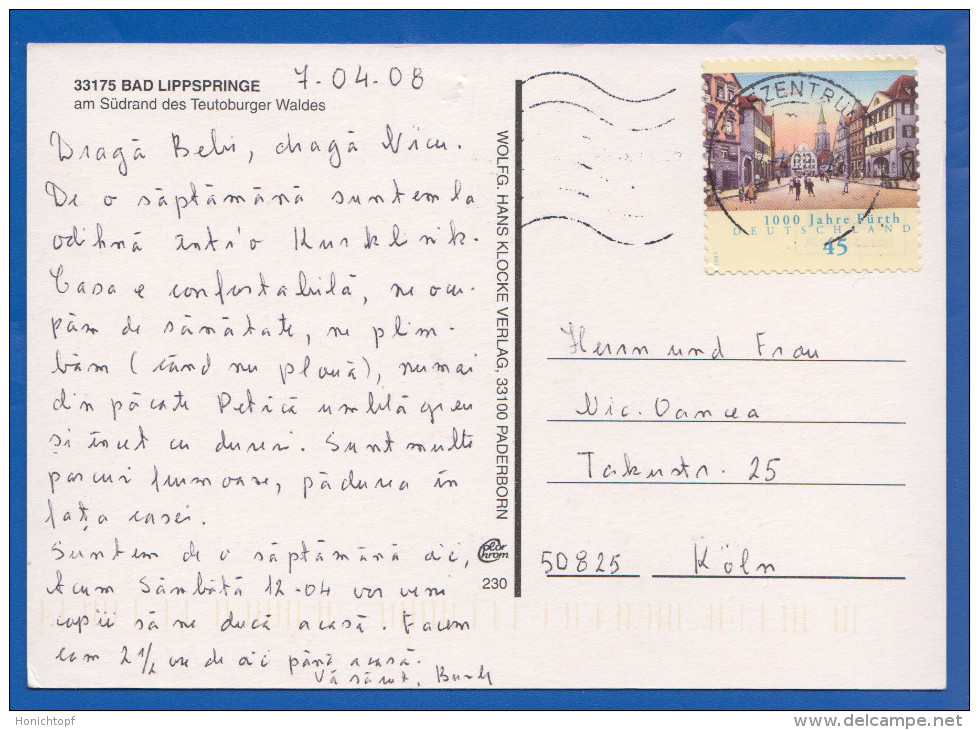 33175 BAD LIPPSPRINGE
am Südrand des Teutoburger Waldes
7-04-08
Dragă Bebi, dragă Nicu.
De o săptămână suntem la
odihnă într'o Kurklinik.
Casa e confortabilă, ne ocu-
păm de sănătate, ne plim-
băm (când nu plouă), numai
din păcate Petrică umblă greu
și încet cu dureri. Sunt multe
parcuri frumoase, pădurea în
fața casei.
Suntem de o săptămână aici,
acum Sâmbătă 12-04 vor veni
copii să ne ducă acasă. Facem
cam 2 1/2 ore de aici până acasă.
Vă sărut,
WOLFG. HANS KLOCKE VERLAG, 33100 PADERBORN
Color Chrom
230
ZENTRUM
1000 Jahre Fürth
DEUTSCHLAND
45
Herrn und Frau
Nic. Oancea
Takustr. 25
50825 Köln
Honichtopf
www.delcampe.net